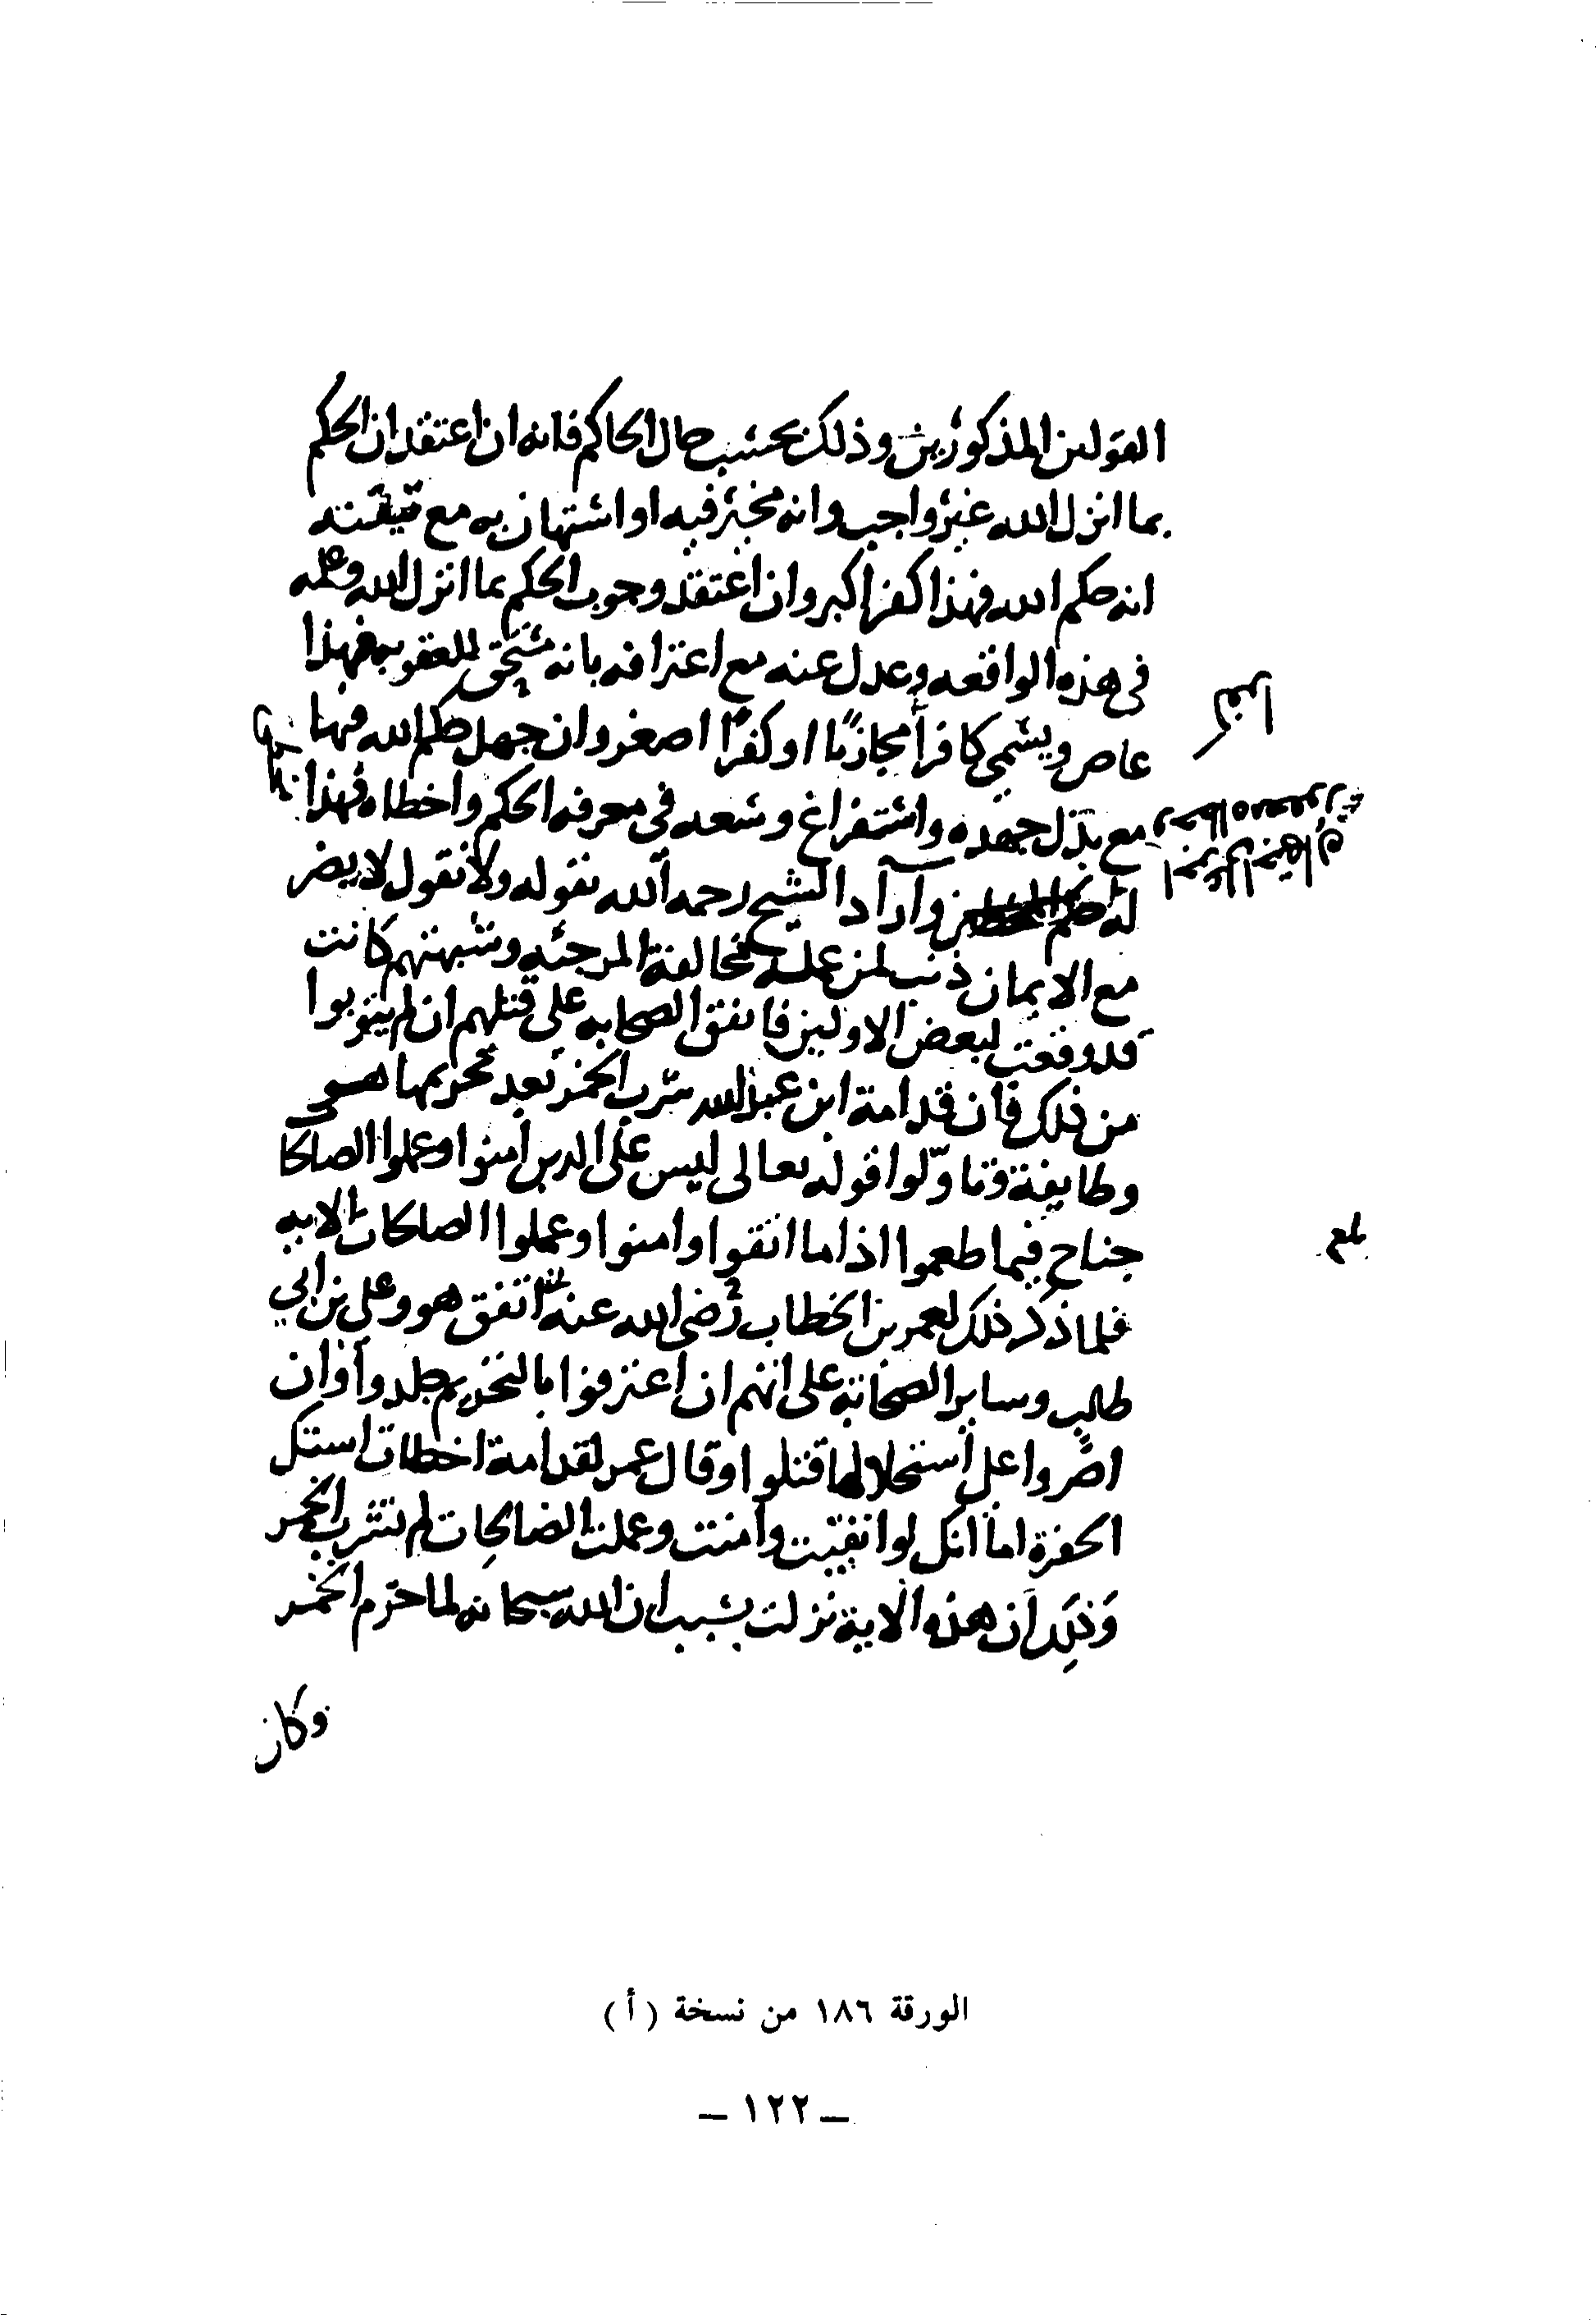 القولين المذكورين وذلك بحسب حال الحاكم فانه ان اعتقد ان الحكم
بما انزل الله غير واجب وانه مخير فيه او استهان به مع تيقنه
انه حكم الله فهذا كفر اكبر وان اعتقد وجوب الحكم بما انزل الله وعلمه
في هذه الواقعه وعدل عنه مع اعترافه بانه مستحق للعقوبه فهذا
عاص ويسمى كافرا مجازيا او كفرا اصغر وان جهل حكم الله فيها
مع بذل جهده واستفراغ وسعه في معرفه الحكم واخطاه فهذا
له حكم وآراد الشيخ رحمه الله بقوله ولا نقول لا يضر
مع الايمان ذنب لمن عمله مخالفة المرجئه وشبهتهم كانت
قد وقعت لبعض الاولين فاتفق الصحابه على قتلهم ان لم يتوبوا
من ذلك فان قدامة ابن عبد الله شرب الخمر بعد تحريمها هو
وطايفة وتاوّلوا قوله تعالى ليس على الدين آمنوا وعملوا الصالحا
جناح فيما طعموا اذا ما اتقوا وامنوا وعملوا الصالحات الايه
فلما ذكر ذلك لعمر بن الخطاب رضي الله عنه اتفق هو وعلي بن ابي
طالب وساير الصحابة على انهم ان اعترفوا بالتحريم جلدوا وان
اصروا على استحلالها قتلوا وقال عمر لقدامة اخطات استك
الحفرة اما انك لو اتقيت وآمنت وعملت الصالحات لم تشرب الخمر
وَذلِكَ أن هذه الاية نزلت بسبب ان الله سبحانه لما حرم الخمر
وكان
بلغ
الورقة ١٨٦ من نسخة (أ)
– ١٢٢ –